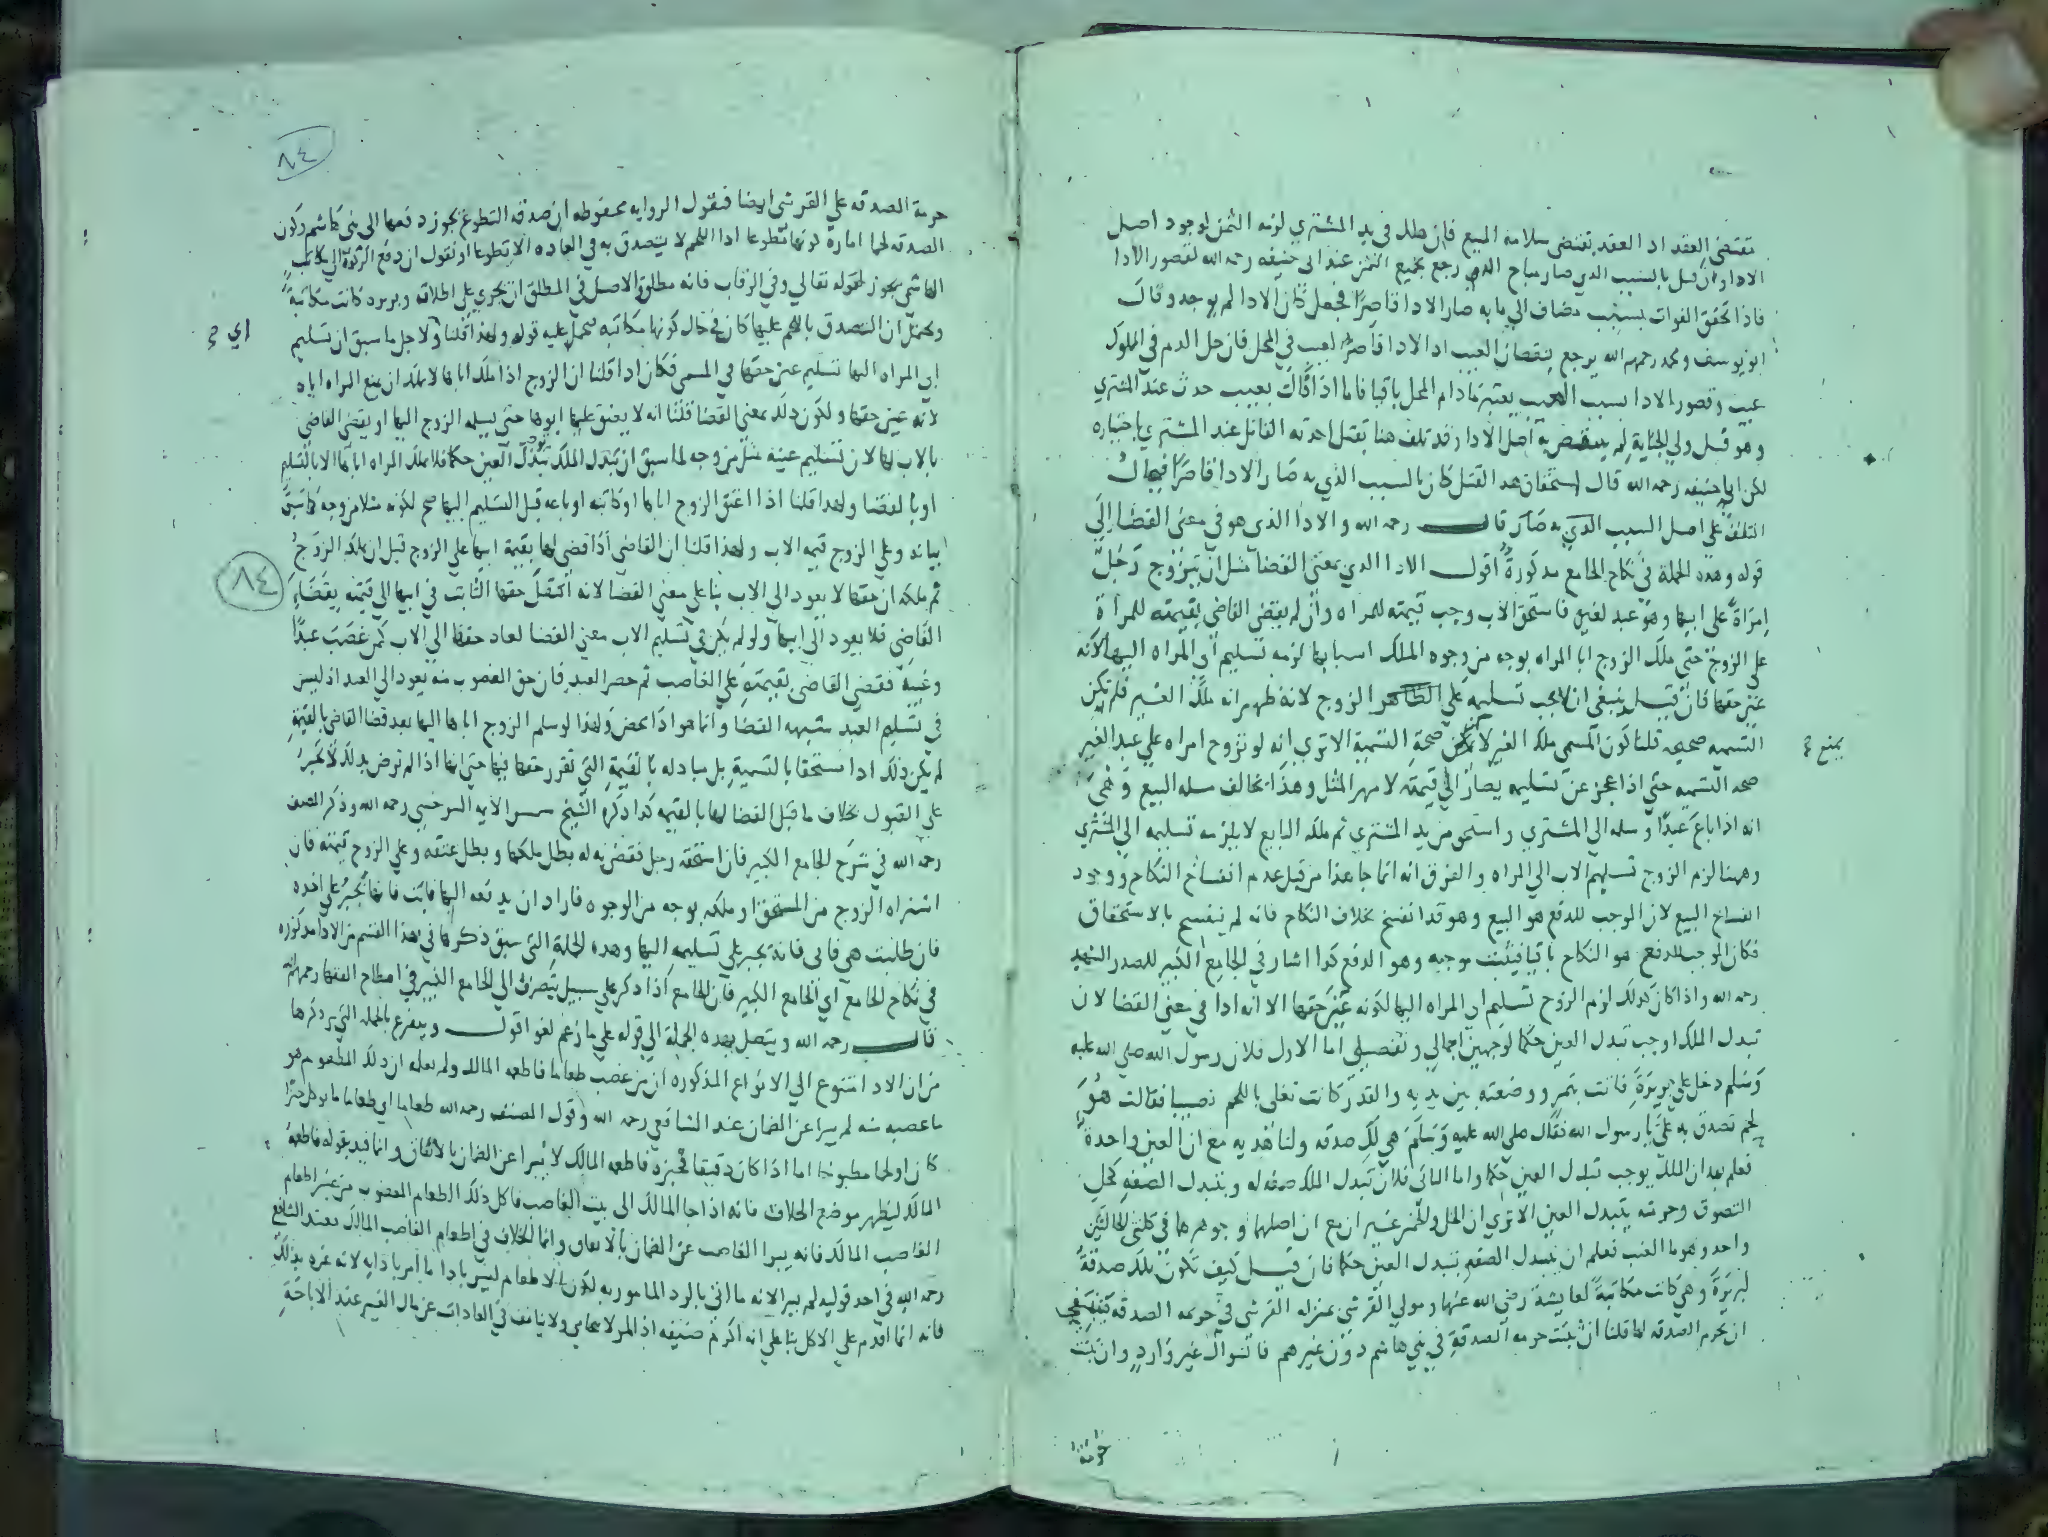 تقتضي العقد اذ العقد يقتضي سلامه المبيع فان هلك في يد المشتري لزمه الثمن لوجود اصل
الادا وان قتل بالسبب الذي صار مباح الدم رجع بجميع الثمن عند ابي حنيفه رحمه الله لقصور الادا
فاذا تحقق الفوات بسبب مضاف الي ما به صار الادا قاصرًا فجعل كان الادا لم يوجد وقال
ابو يوسف ومحمد رحمهم الله يرجع بنقصان العيب اذ الادا قاصر لعيب في المحل فان حل الدم في المملوك
عيب وقصور الادا بسبب العيب يعتبر مادام المحل باقيا فاما اذا فات بعيب حدث عند المشتري
وهو قتل ولي الجناية لم ينتقض به اصل الادا وقد تلف هنا بقتل احدثه القاتل عند المشتري باختياره
لكن ابو حنيفه رحمه الله قال استحقاق هذا القتل كان بالسبب الذي به صار الادا قاصرًا فيحال
التلف علي اصل السبب الذي به صار قال رحمه الله والادا الذي هو في معني القضا الي
قوله وهذه الجملة في نكاح الجامع مذكورة اقول الادا الذي بمعني القضا مثل ان يتزوج رجل
امرأة علي ابيها وهو عبد لغيره فاستحق الاب وجب قيمته للمراه وان لم يقض القاضي بقيمته للمرأة
علي الزوج حتي ملك الزوج ابا المراه بوجه من وجوه الملك اسبابها لزمه تسليم ابي المراه اليها لانه
عين حقها فان قيل ينبغي ان لا يجب تسليمه علي الزوج لانه ظهر انه ملك الغير فلم تكن
التسميه صحيحه قلنا كون المسمي ملك الغير لا صحة التسمية الا تري انه لو تزوج امراه علي عبد الغير
يمنع
صحه التسميه حتي اذا عجز عن تسليمه يصار الي قيمته لا مهر المثل وهذا يخالف مسله البيع وهي
انه اذا باع عبدًا وسلمه الي المشتري واستحق من يد المشتري ثم ملكه البايع لا يلزمه تسليمه الي المشتري
وههنا لزم الزوج تسليم الاب الي المراه والفرق انه انما جا هذا من قبل عدم انفساخ النكاح ووجود
انفساخ البيع لان الموجب للدفع هو البيع وهو قد انفسخ بخلاف النكاح فانه لم ينفسخ بالاستحقاق
فكان الموجب للدفع هو النكاح باقيا فيثبت موجبه وهو الدفع كذا اشار في الجامع الكبير للصدر الشهيد
رحمه الله واذا كان كذلك لزم الزوج تسليم ابي المراه اليها لكونه عين حقها الا انه ادا في معني القضا لان
تبدل الملك اوجب تبدل العين حكما لوجهين اجمالي وتفصيلي اما الاول فلان رسول الله صلي الله عليه
وسلم دخل علي بريرة فاتت بتمر ووضعته بين يديه والقدر كانت تغلي باللحم نصيبا فقالت هو
لحم تصدق به علي يا رسول الله فقال صلي الله عليه وسلم هي لك صدقه ولنا هديه مع ان العين واحدة
فعلم بهذا ان الملك يوجب تبدل العين حكما واما الثاني فلان تبدل الملك صفه له وبتبدل الصفه كحل
التصرف وحرمته يتبدل العين الا تري ان الخل والخمر غيران مع ان اصلهما وجوهرهما في كلتي الحالتين
واحد وهو ما العنب فعلم ان بتبدل الصفه تتبدل العين حكما فان قيل كيف تكون تلك صدقة
لبريرة وهي كانت مكاتبة لعايشة رضي الله عنها ومولي القرشي بمنزله القرشي في حرمه الصدقه
ان تحرم الصدقه لها قلنا ان ثبت حرمه الصدقة في بني هاشم دون غيرهم فالسوال غير وارد وان ثبت
حرمة
٨٤
حرمة الصدقه علي القرشي ايضا فنقول الروايه محفوظه ان صدقه التطوع يجوز دفعها الي بني هاشم وكون
الصدقه لحما امارة كونها تطوعا اذ اللحم لا يتصدق به في العاده الا تطوعا او نقول ان دفع الزكوة الي مكاتب
الهاشمي يجوز لقوله تعالي وفي الرقاب فانه مطلق والاصل في المطلق ان يجري علي اطلاقه وبريره كانت مكاتبة
ويحتمل ان التصدق باللحم عليها كان في حال كونها مكاتبه يحمل عليه قوله ولهذا قلنا ولاجل ما سبق ان تسليم
اي
ابي المراه اليها تسليم عين حقها في المسمي فكان ادا قلنا ان الزوج اذا ملك اباها لا يملك ان يمنع المراه اياه
لانه عين حقها ولكون ذلك بمعني القضا قلنا انه لا يعتق عليها ابوها حتي يسلمه الزوج اليها او يقضي القاضي
بالاب لها لان تسليم عينه مثل من وجه لما سبق ان تبدل الملك تبدل العين حكما فلا تملك المراه اباها الا بالتسليم
او بالقضا ولهذا قلنا اذا اعتق الزوج اباها او كاتبه او باعه قبل التسليم اليها صح لكونه مثلا من وجه كما سبق
بيانه وعلي الزوج قيمه الاب ولهذا قلنا ان القاضي اذا قضي لها بقيمة ابيها علي الزوج قبل ان يملك الزوج
٨٤
ثم ملكه ان حقها لا يعود الي الاب بنا علي معني القضا لانه انتقل حقها الثابت في ابيها الي قيمته بقضاء
القاضي فلا يعود الي ابيها ولو لم يكن في تسليم الاب معني القضا لعاد حقها الي الاب كمن غصب عبدًا
وغيبه فقضي القاضي بقيمته علي الغاصب ثم حضر العبد فان حق المغصوب منه يعود الي العبد اذ ليس
في تسليم العبد شبهه القضا وانما هو ادا محض ولهذا لو سلم الزوج اباها اليها بعد قضا القاضي بالقيمة
لم يكن ذلك ادا مستحقا بالتسمية بل مبادله بالقيمة التي تقرر حقها فيها حتي انها اذا لم ترض بذلك لا تجبر
علي القبول بخلاف ما قبل القضا لها بالقيمه كذا ذكره الشيخ شمس الايمه السرخسي رحمه الله وذكر المصنف
رحمه الله في شرح الجامع الكبير فان استحقه رجل فقضي به له بطل ملكها وبطل عتقه وعلي الزوج قيمته فان
اشتراه الزوج من المستحق او ملكه بوجه من الوجوه فاراد ان يدفعه اليها فابت فانها تجبر علي اخذه
فان طلبت هي فابي فانه يجبر علي تسليمه اليها وهذه الجملة التي سبق ذكرها في هذا القسم من الادا مذكوره
في نكاح الجامع اي الجامع الكبير فان الجامع اذا ذكر علي سبيل ينصرف الي الجامع الكبير في اصطلاح الفقها رحمهم الله
قال رحمه الله ويتصل بهذه الجملة الي قوله علي ما زعم لغو اقول ويتفرع بالجمله التي مر ذكرها
من ان الادا متنوع الي الانواع المذكوره ان من غصب طعاما فاطعمه المالك ولم يعلمه ان ذلك المطعوم هو
ما غصبه منه لم يبرا عن الضمان عند الشافعي رحمه الله وقول المصنف رحمه الله طعاما اي طعاما ما يوكل خبزا
كان او لحما مطبوخا اما اذا كان دقيقا فخبزه فاطعمه المالك لا يبرا عن الضمان بالاتفاق وانما قيد بقوله فاطعمه
المالك ليظهر موضع الخلاف فانه اذا جا المالك الي بيت الغاصب فاكل ذلك الطعام المغصوب من غير اطعام
الغاصب المالك فانه يبرا الغاصب عن الضمان بالاتفاق وانما الخلاف في اطعام الغاصب المالك فعند الشافعي
رحمه الله في احد قوليه لم يبرا لانه ما اتي بالرد المامور به لكون الاطعام ليس بادا ما امر بادايه لانه غره بذلك
فانه انما اقدم علي الاكل بنا علي انه اكرم ضيفه اذ المر لا يتحامي ولا يانف في العادات عن مال الغير عند الاباحة